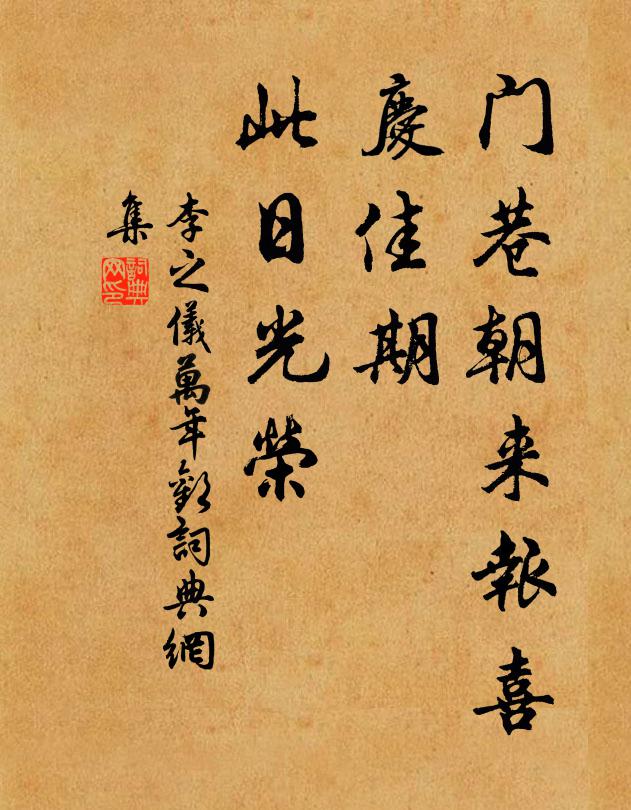 门巷朝来报喜
慶佳期
此日光榮
李之儀萬年歡詞典網
集
詞典
网印